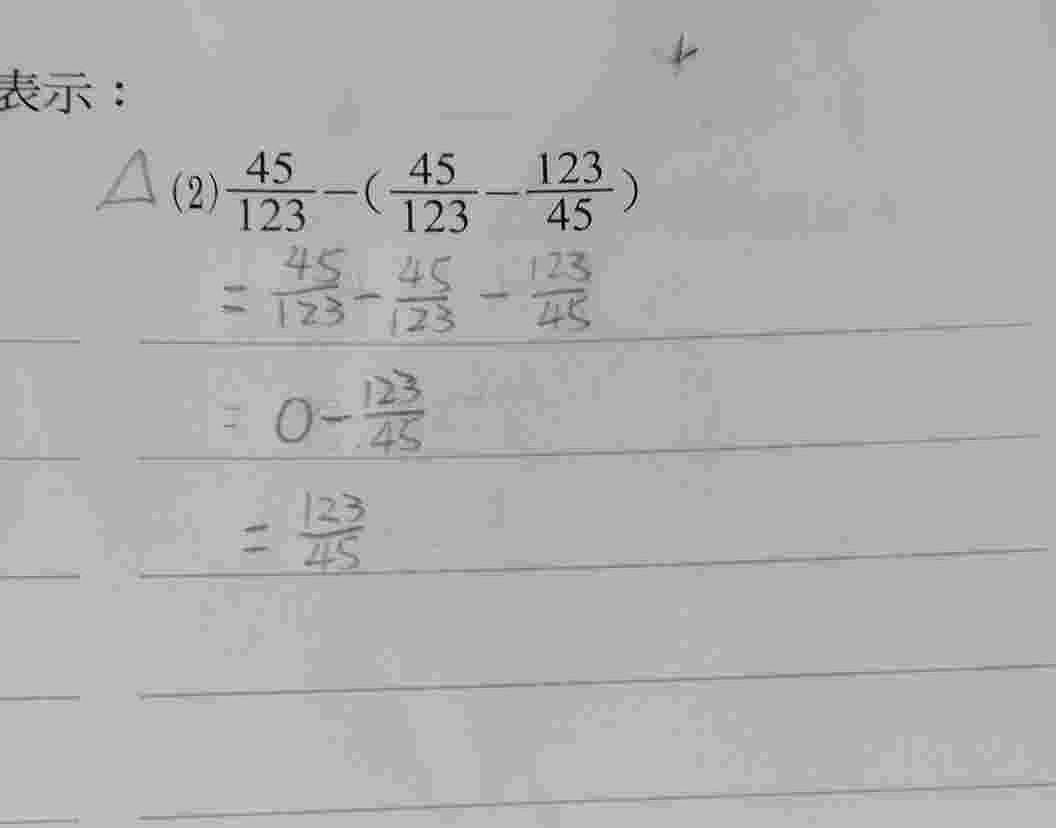 表示：
△ (2) 45/123 − (45/123 − 123/45)
= 45/123 − 45/123 − 123/45
= 0 − 123/45
= 123/45